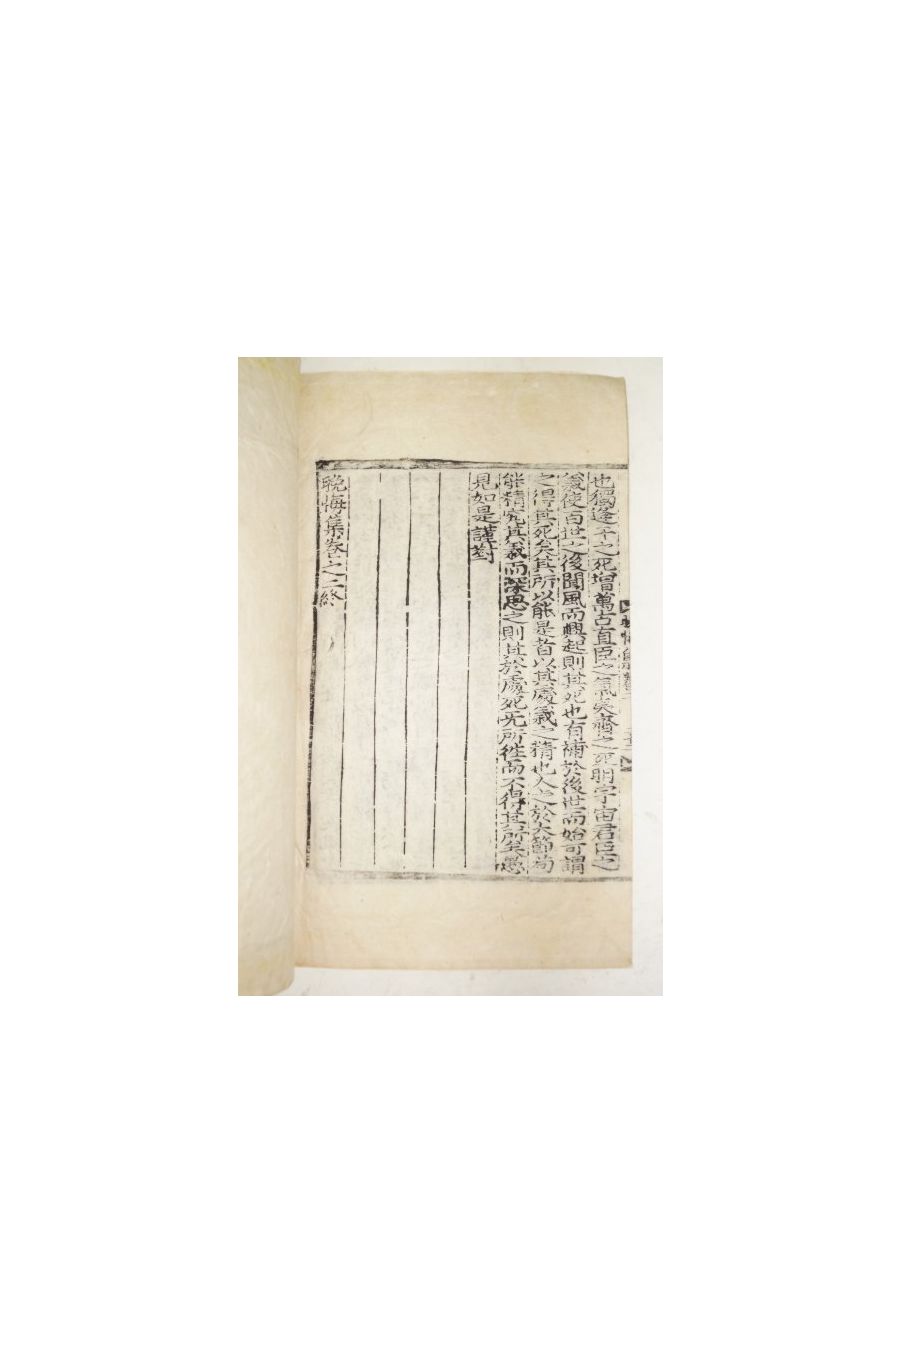 也獨逢干之死增萬古直臣之氣矣齊之死明宇宙君臣之
義使百世之後聞風而興起則其死也有補於後世而始可謂
之得其死矣其所以能是者以其處義之精也人之於大節苟
能精究其義而深思之則其於處死无所往而不得其所矣愚
見如是謹對
晚悔集卷之二終